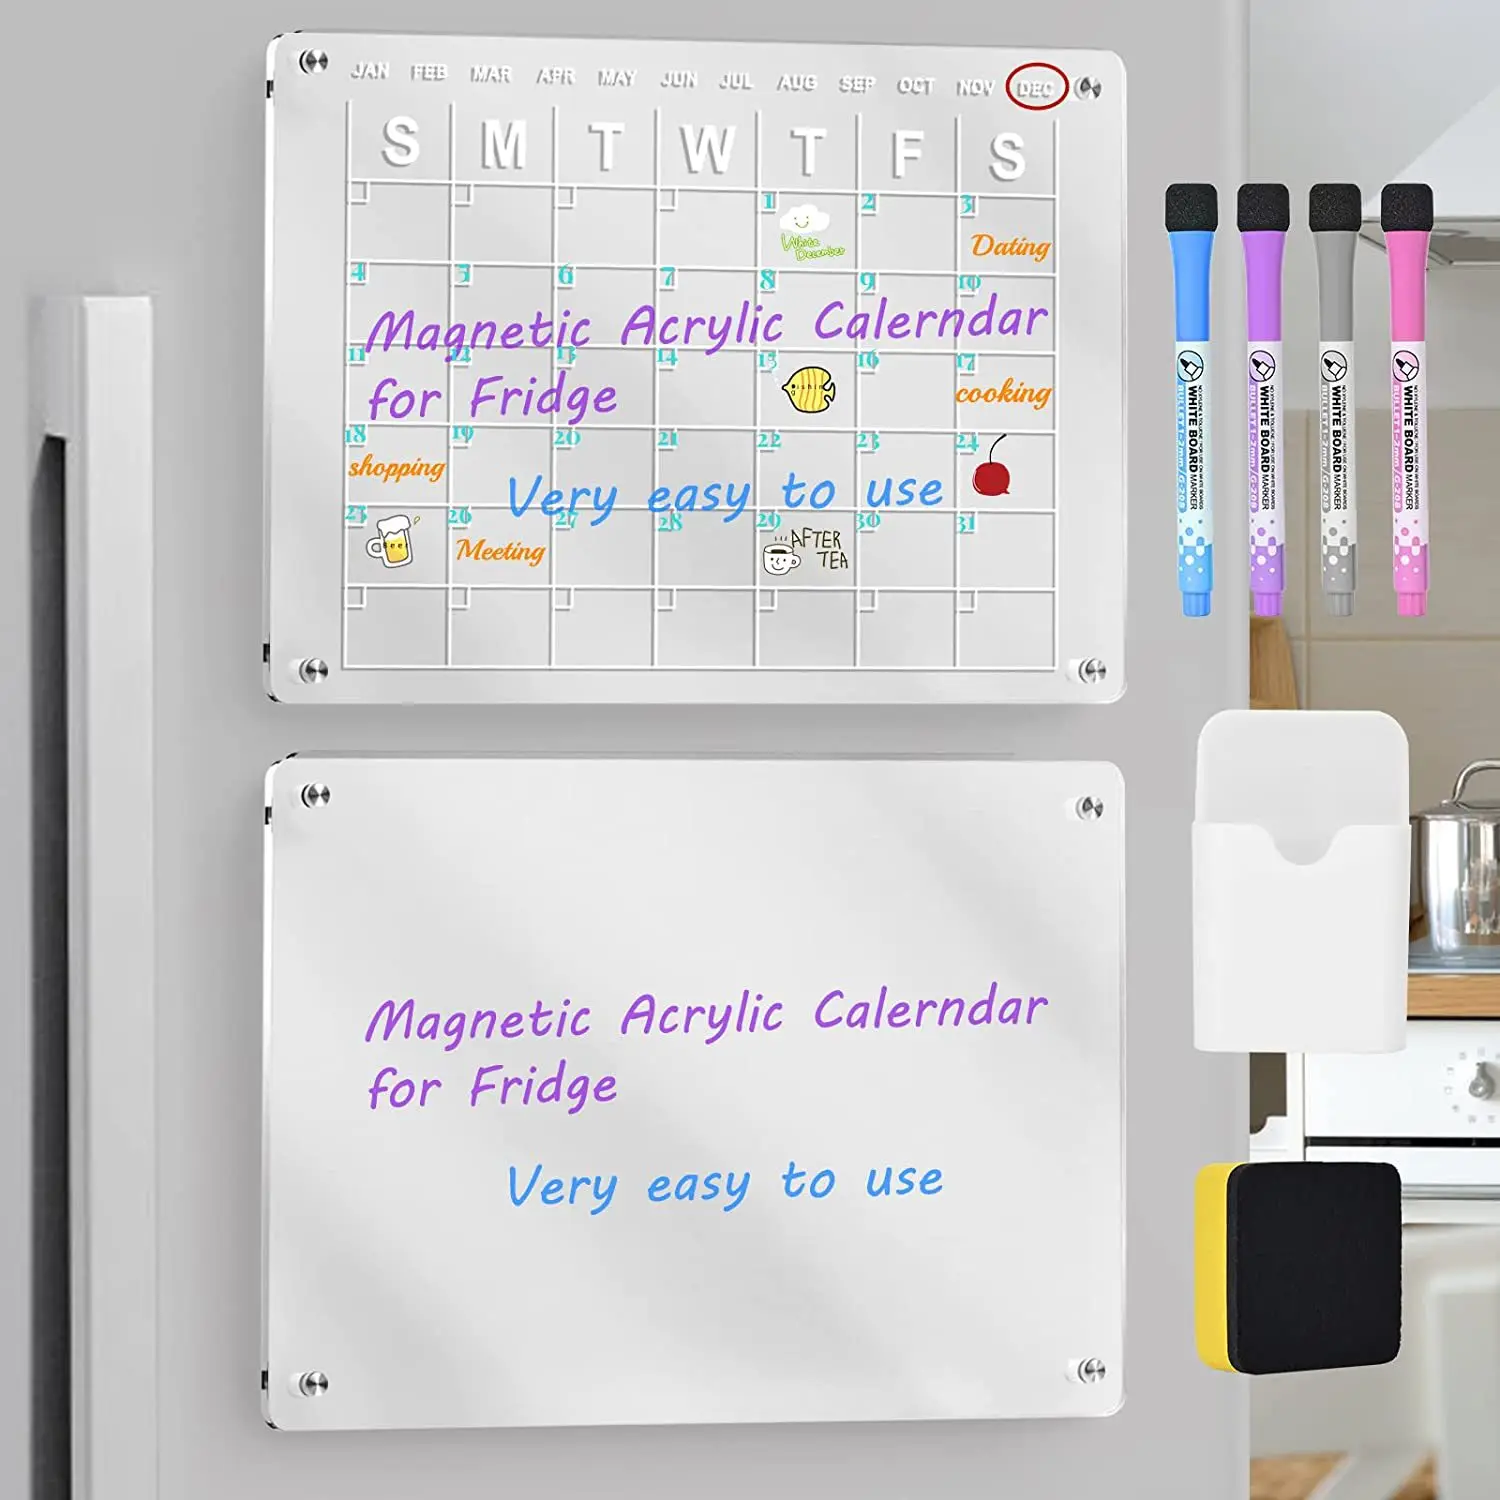 JAN FEB MAR APR MAY JUN JUL AUG SEP OCT NOV DEC
S M T W T F S
1 2 3
White
December
Dating
4 5 6 7 8 9 10
Magnetic Acrylic Calerndar
11 12 13 14 15 16 17
for Fridge
cooking
18 19 20 21 22 23 24
shopping
Very easy to use
25 26 27 28 29 30 31
Beer
Meeting
AFTER
TEA
WHITE BOARD MARKER
BULLET 1-2mm/G-208
WHITE BOARD MARKER
BULLET 1-2mm/G-208
WHITE BOARD MARKER
BULLET 1-2mm/G-208
WHITE BOARD MARKER
BULLET 1-2mm/G-208
Magnetic Acrylic Calerndar
for Fridge
Very easy to use